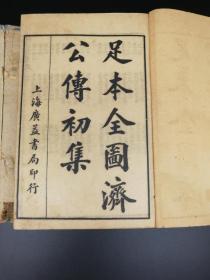 足本全圖濟
公傳初集
上海廣益書局印行